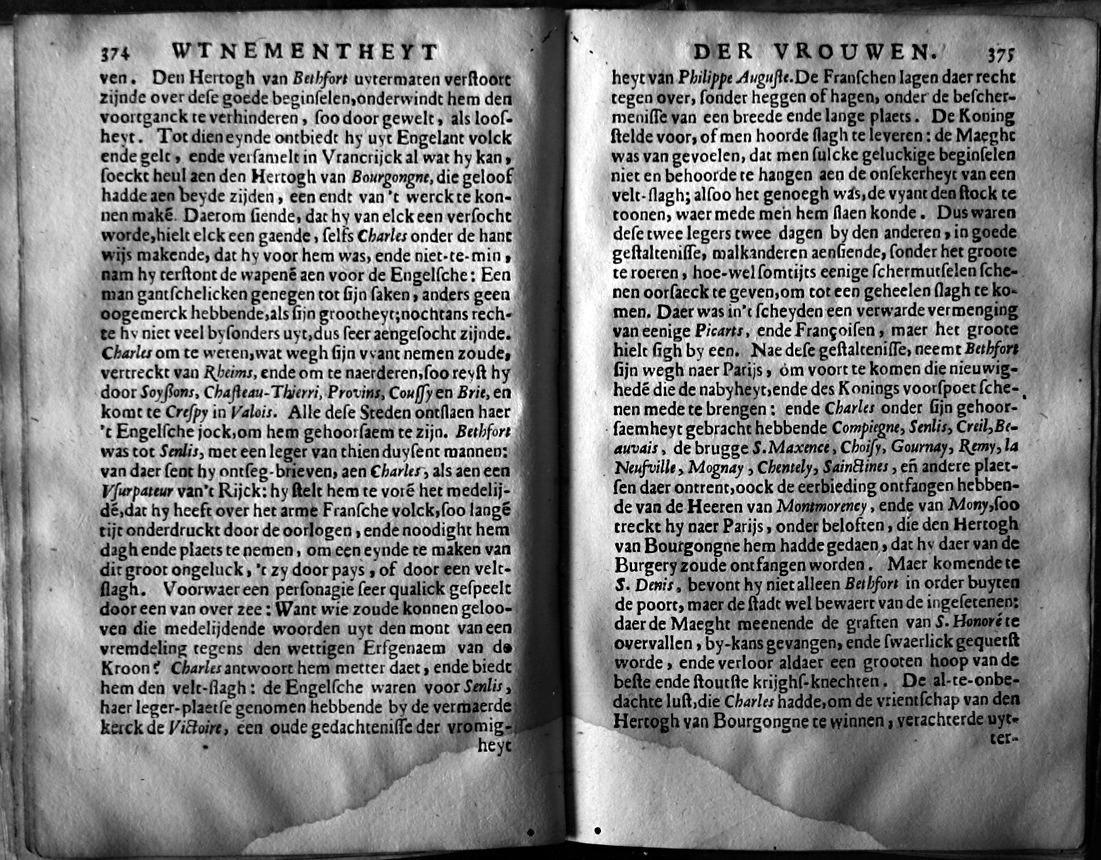 374 WTNEMENTHEYT
ven. Den Hertogh van Bethfort uvtermaten verſtoort
zijnde over deſe goede beginſelen,onderwindt hem den
voortganck te verhinderen, ſoo door gewelt, als looſ-
heyt. Tot dien eynde ontbiedt hy uyt Engelant volck
ende gelt, ende verſamelt in Vrancrijck al wat hy kan,
ſoeckt heul aen den Hertogh van Bourgongne, die geloof
hadde aen beyde zijden, een endt van 't werck te kon-
nen makē. Daerom ſiende, dat hy van elck een verſocht
worde,hielt elck een gaende, ſelfs Charles onder de hant
wijs makende, dat hy voor hem was, ende niet-te-min,
nam hy terſtont de wapenē aen voor de Engelſche: Een
man gantſchelicken genegen tot ſijn ſaken, anders geen
oogemerck hebbende,als ſijn grootheyt;nochtans rech-
te hy niet veel byſonders uyt,dus ſeer aengeſocht zijnde.
Charles om te weten,wat wegh ſijn vyant nemen zoude,
vertreckt van Rheims, ende om te naerderen,ſoo reyſt hy
door Soyſſons, Chaſteau-Thierri, Provins, Couſſy en Brie, en
komt te Creſpy in Valois. Alle deſe Steden ontſlaen haer
't Engelſche jock,om hem gehoorſaem te zijn. Bethfort
was tot Senlis, met een leger van thien duyſent mannen:
van daer ſent hy ontſeg-brieven, aen Charles, als aen een
Vſurpateur van't Rijck: hy ſtelt hem te vorē het medelij-
dē,dat hy heeft over het arme Franſche volck,ſoo langē
tijt onderdruckt door de oorlogen, ende noodight hem
dagh ende plaets te nemen, om een eynde te maken van
dit groot ongeluck, 't zy door pays, of door een velt-
ſlagh. Voorwaer een perſonagie ſeer qualick geſpeelt
door een van over zee: Want wie zoude konnen geloo-
ven die medelijdende woorden uyt den mont van een
vremdeling tegens den wettigen Erfgenaem van de
Kroon? Charles antwoort hem metter daet, ende biedt
hem den velt-ſlagh: de Engelſche waren voor Senlis,
haer leger-plaetſe genomen hebbende by de vermaerde
kerck de Victoire, een oude gedachteniſſe der vromig-
heyt
DER VROUWEN. 375
heyt van Philippe Auguſte.De Franſchen lagen daer recht
tegen over, ſonder heggen of hagen, onder de beſcher-
meniſſe van een breede ende lange plaets. De Koning
ſtelde voor, of men hoorde ſlagh te leveren: de Maeght
was van gevoelen, dat men ſulcke geluckige beginſelen
niet en behoorde te hangen aen de onſekerheyt van een
velt-ſlagh; alſoo het genoegh was,de vyant den ſtock te
toonen, waer mede men hem ſlaen konde. Dus waren
deſe twee legers twee dagen by den anderen, in goede
geſtalteniſſe, malkanderen aenſiende, ſonder het groote
te roeren, hoe-wel ſomtijts eenige ſchermutſelen ſche-
nen oorſaeck te geven,om tot een geheelen ſlagh te ko-
men. Daer was in't ſcheyden een verwarde vermenging
van eenige Picarts, ende Françoiſen, maer het groote
hielt ſigh by een. Nae deſe geſtalteniſſe, neemt Bethfort
ſijn wegh naer Parijs, om voort te komen die nieuwig-
hedē die de nabyheyt,ende des Konings voorſpoet ſche-
nen mede te brengen: ende Charles onder ſijn gehoor-
ſaemheyt gebracht hebbende Compiegne, Senlis, Creil,Be-
auvais, de brugge S.Maxence, Choiſy, Gournay, Remy, la
Neufville, Mognay, Chentely, Sainctines, eñ andere plaet-
ſen daer ontrent,oock de eerbieding ontfangen hebben-
de van de Heeren van Montmoreney, ende van Mony,ſoo
treckt hy naer Parijs, onder beloften, die den Hertogh
van Bourgongne hem hadde gedaen, dat hy daer van de
Burgery zoude ontfangen worden. Maer komende te
S. Denis, bevont hy niet alleen Bethfort in order buyten
de poort, maer de ſtadt wel bewaert van de ingeſetenen:
daer de Maeght meenende de graften van S. Honoré te
overvallen, by-kans gevangen, ende ſwaerlick gequetſt
worde, ende verloor aldaer een grooten hoop van de
beſte ende ſtoutſte krijghſ-knechten. De al-te-onbe-
dachte luſt,die Charles hadde,om de vrientſchap van den
Hertogh van Bourgongne te winnen, verachterde uyt-
ter-